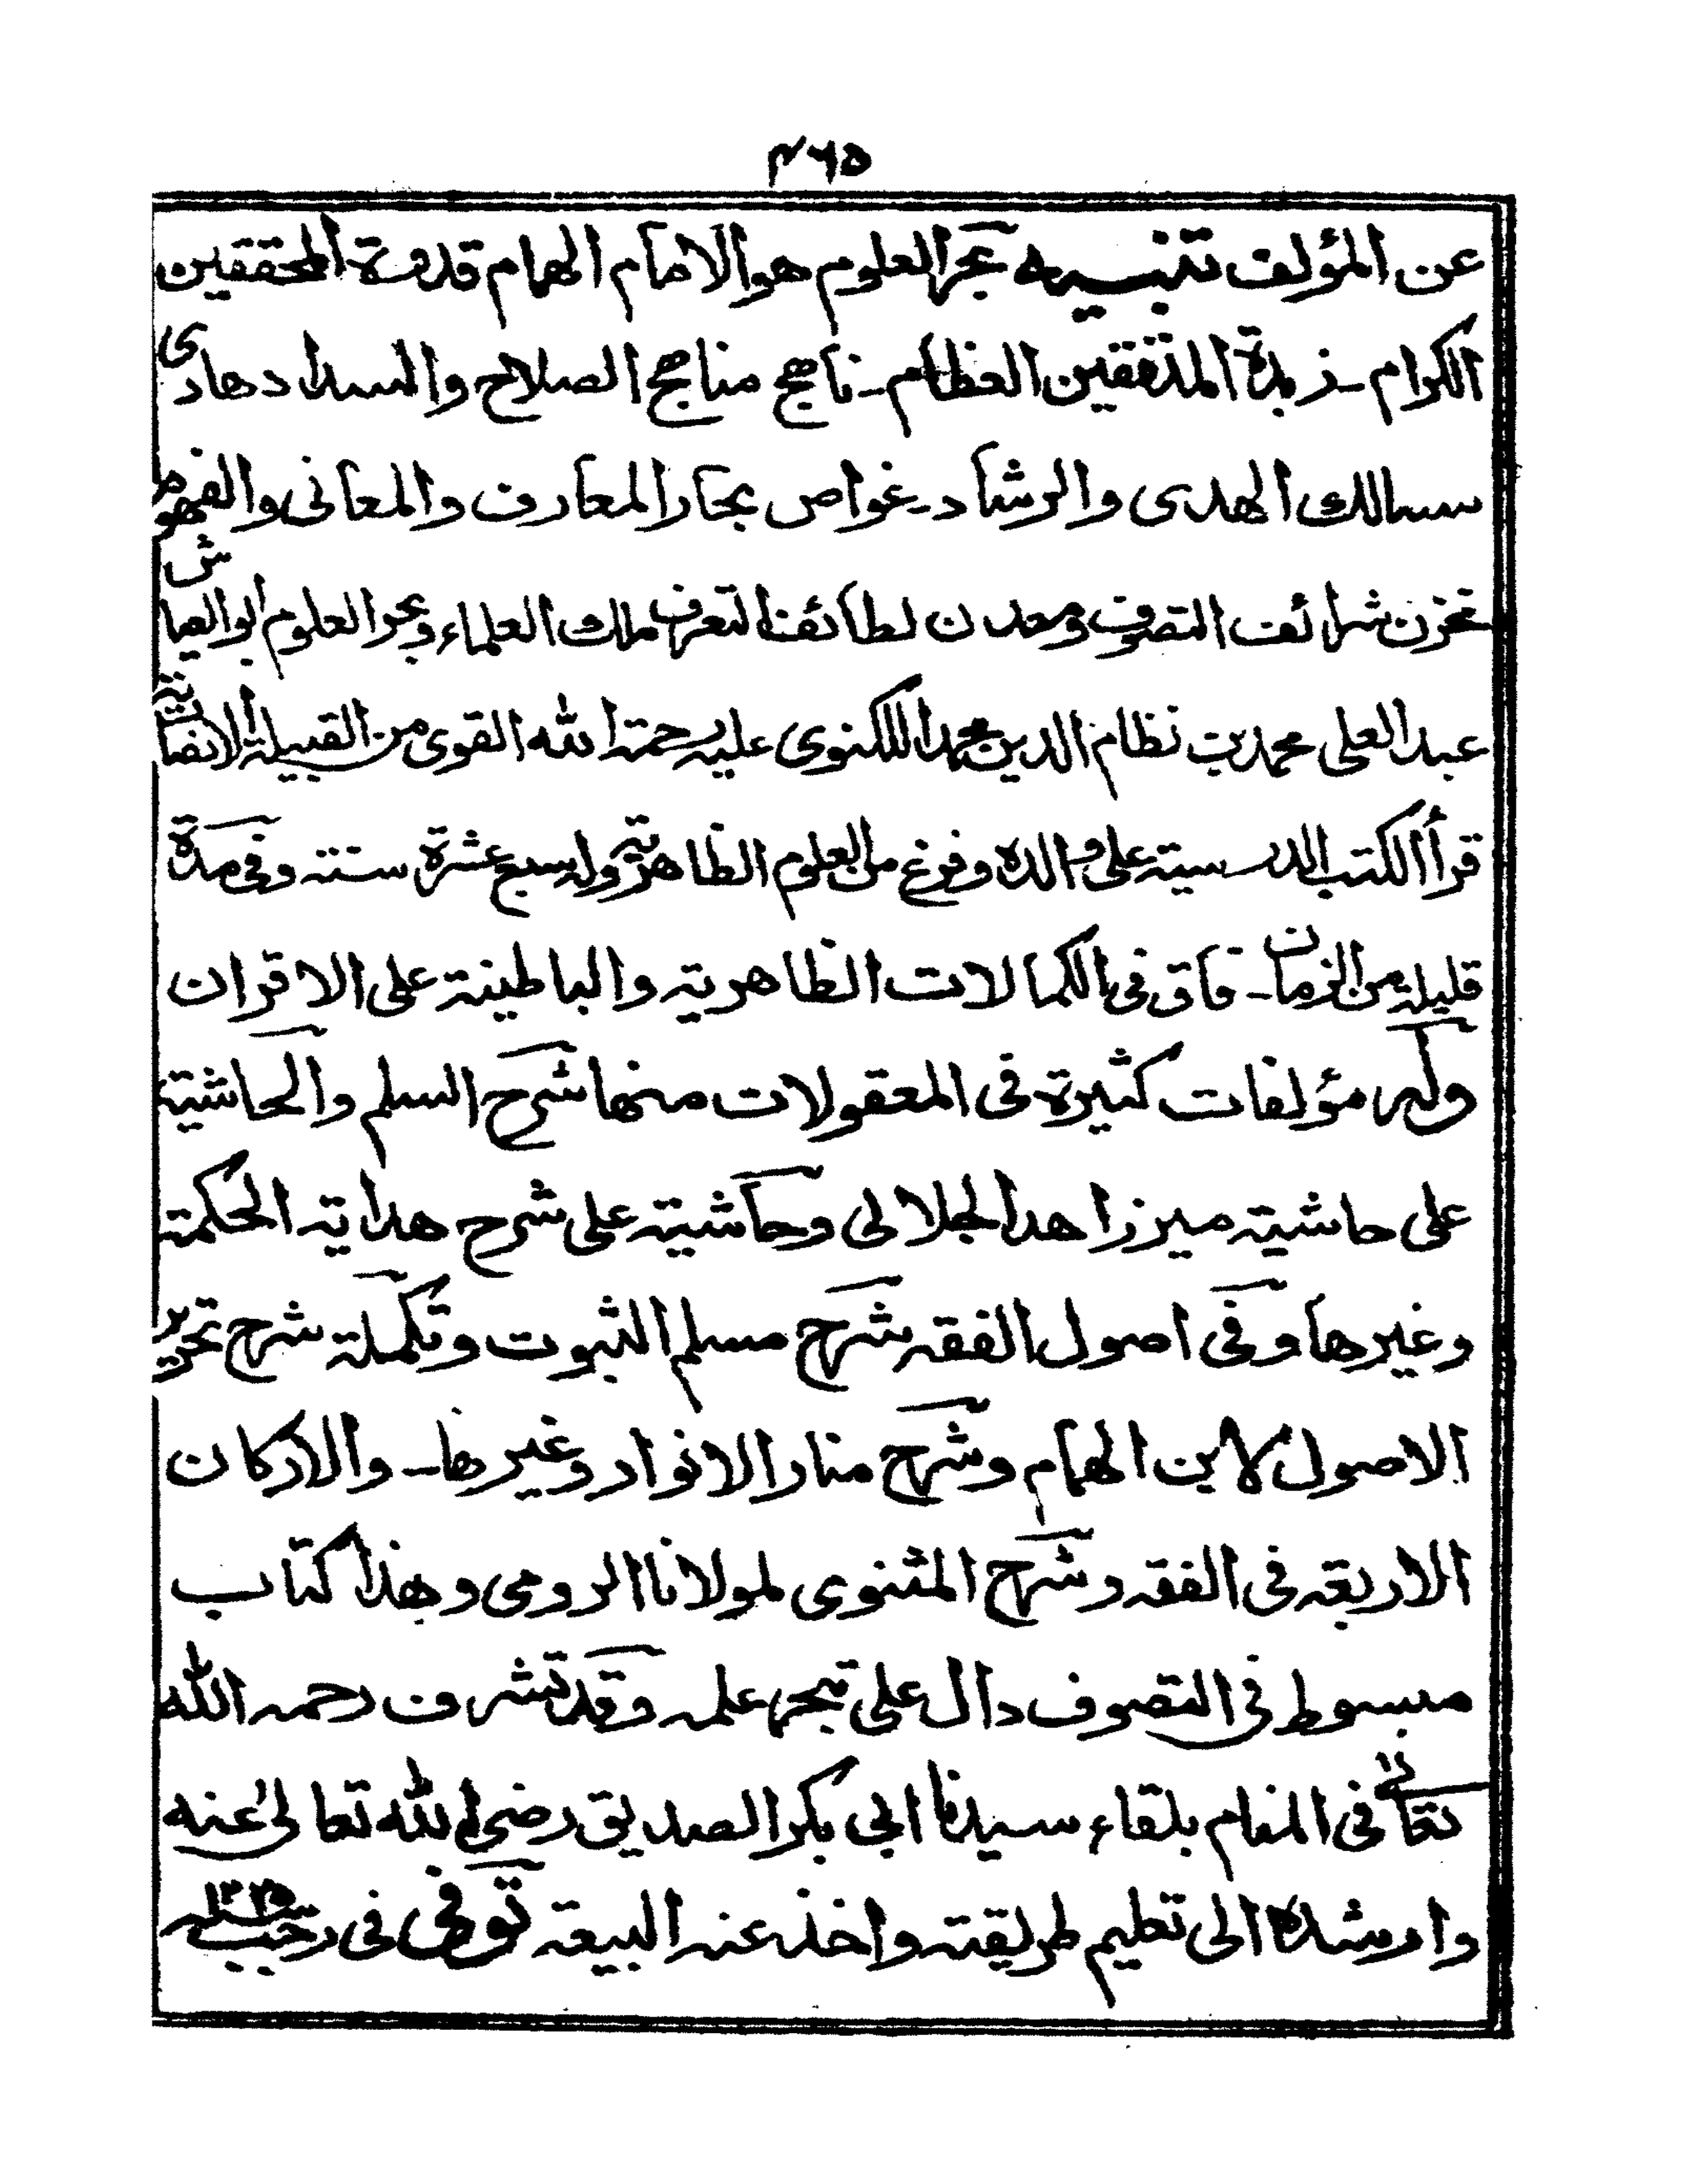 ٤٦٥
عن المؤلف تنبيه بحر العلوم هو الامام الهمام قدوة المحققين
الكرام ـ زبدة المدققين العظام ـ ناهج مناهج الصلاح والسداد هادى
سالك الهدى والرشاد ـ غواص بحار المعارف والمعانى والفهوم
مخزن شرائف التصوف ومعدن لطائف التعرف ملك العلماء وبحر العلوم ابو العياش
عبد العلى محمد بن نظام الدين محمد اللكنوى عليه رحمة الله القوى من القبيلة الانصارية
قرأ الكتب الدرسية على والده وفرغ من العلوم الظاهرية وله سبع عشرة سنته وفى مدة
قليلة من الزمان ـ فاق فى الكمالات الظاهرية والباطينة على الاقران
وله مؤلفات كثيرة فى المعقولات منها شرح السلم والحاشية
على حاشية ميرزاهد الجلالى وحاشية على شرح هداية الحكمة
وغيرها وفى اصول الفقه شرح مسلم الثبوت وتكملة شرح تحرير
الاصول لابن الهمام وشرح منار الانوار وغيرها ـ والاركان
الاربعة فى الفقه وشرح المثنوى لمولانا الرومى وهذا كتاب
مبسوط فى التصوف دال على تبحر علمه وقد تشرف رحمه الله
تعالى فى المنام بلقاء سيدنا ابى بكر الصديق رضى الله تعالى عنه
وارشده الى تعليم طريقته واخذ عنه البيعة توفى فى رجب